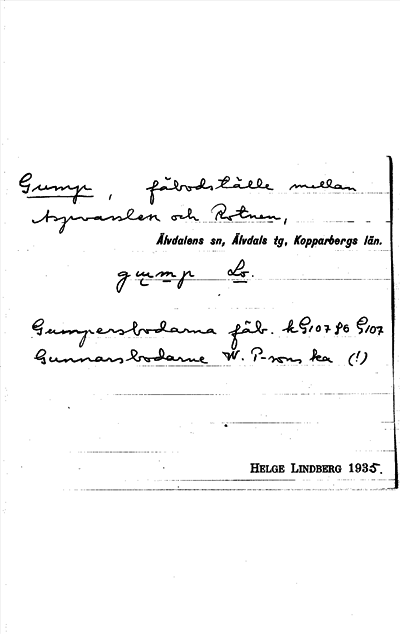 Gump, fäbodställe mellan
och Rotnen,
Älvdalens sn, Älvdals tg, Kopparbergs län.
gump Lo.
Gumpersbodarna fäb. kG107
Gunnarsbodarne W. P-sons ka (!)
HELGE LINDBERG 1935.